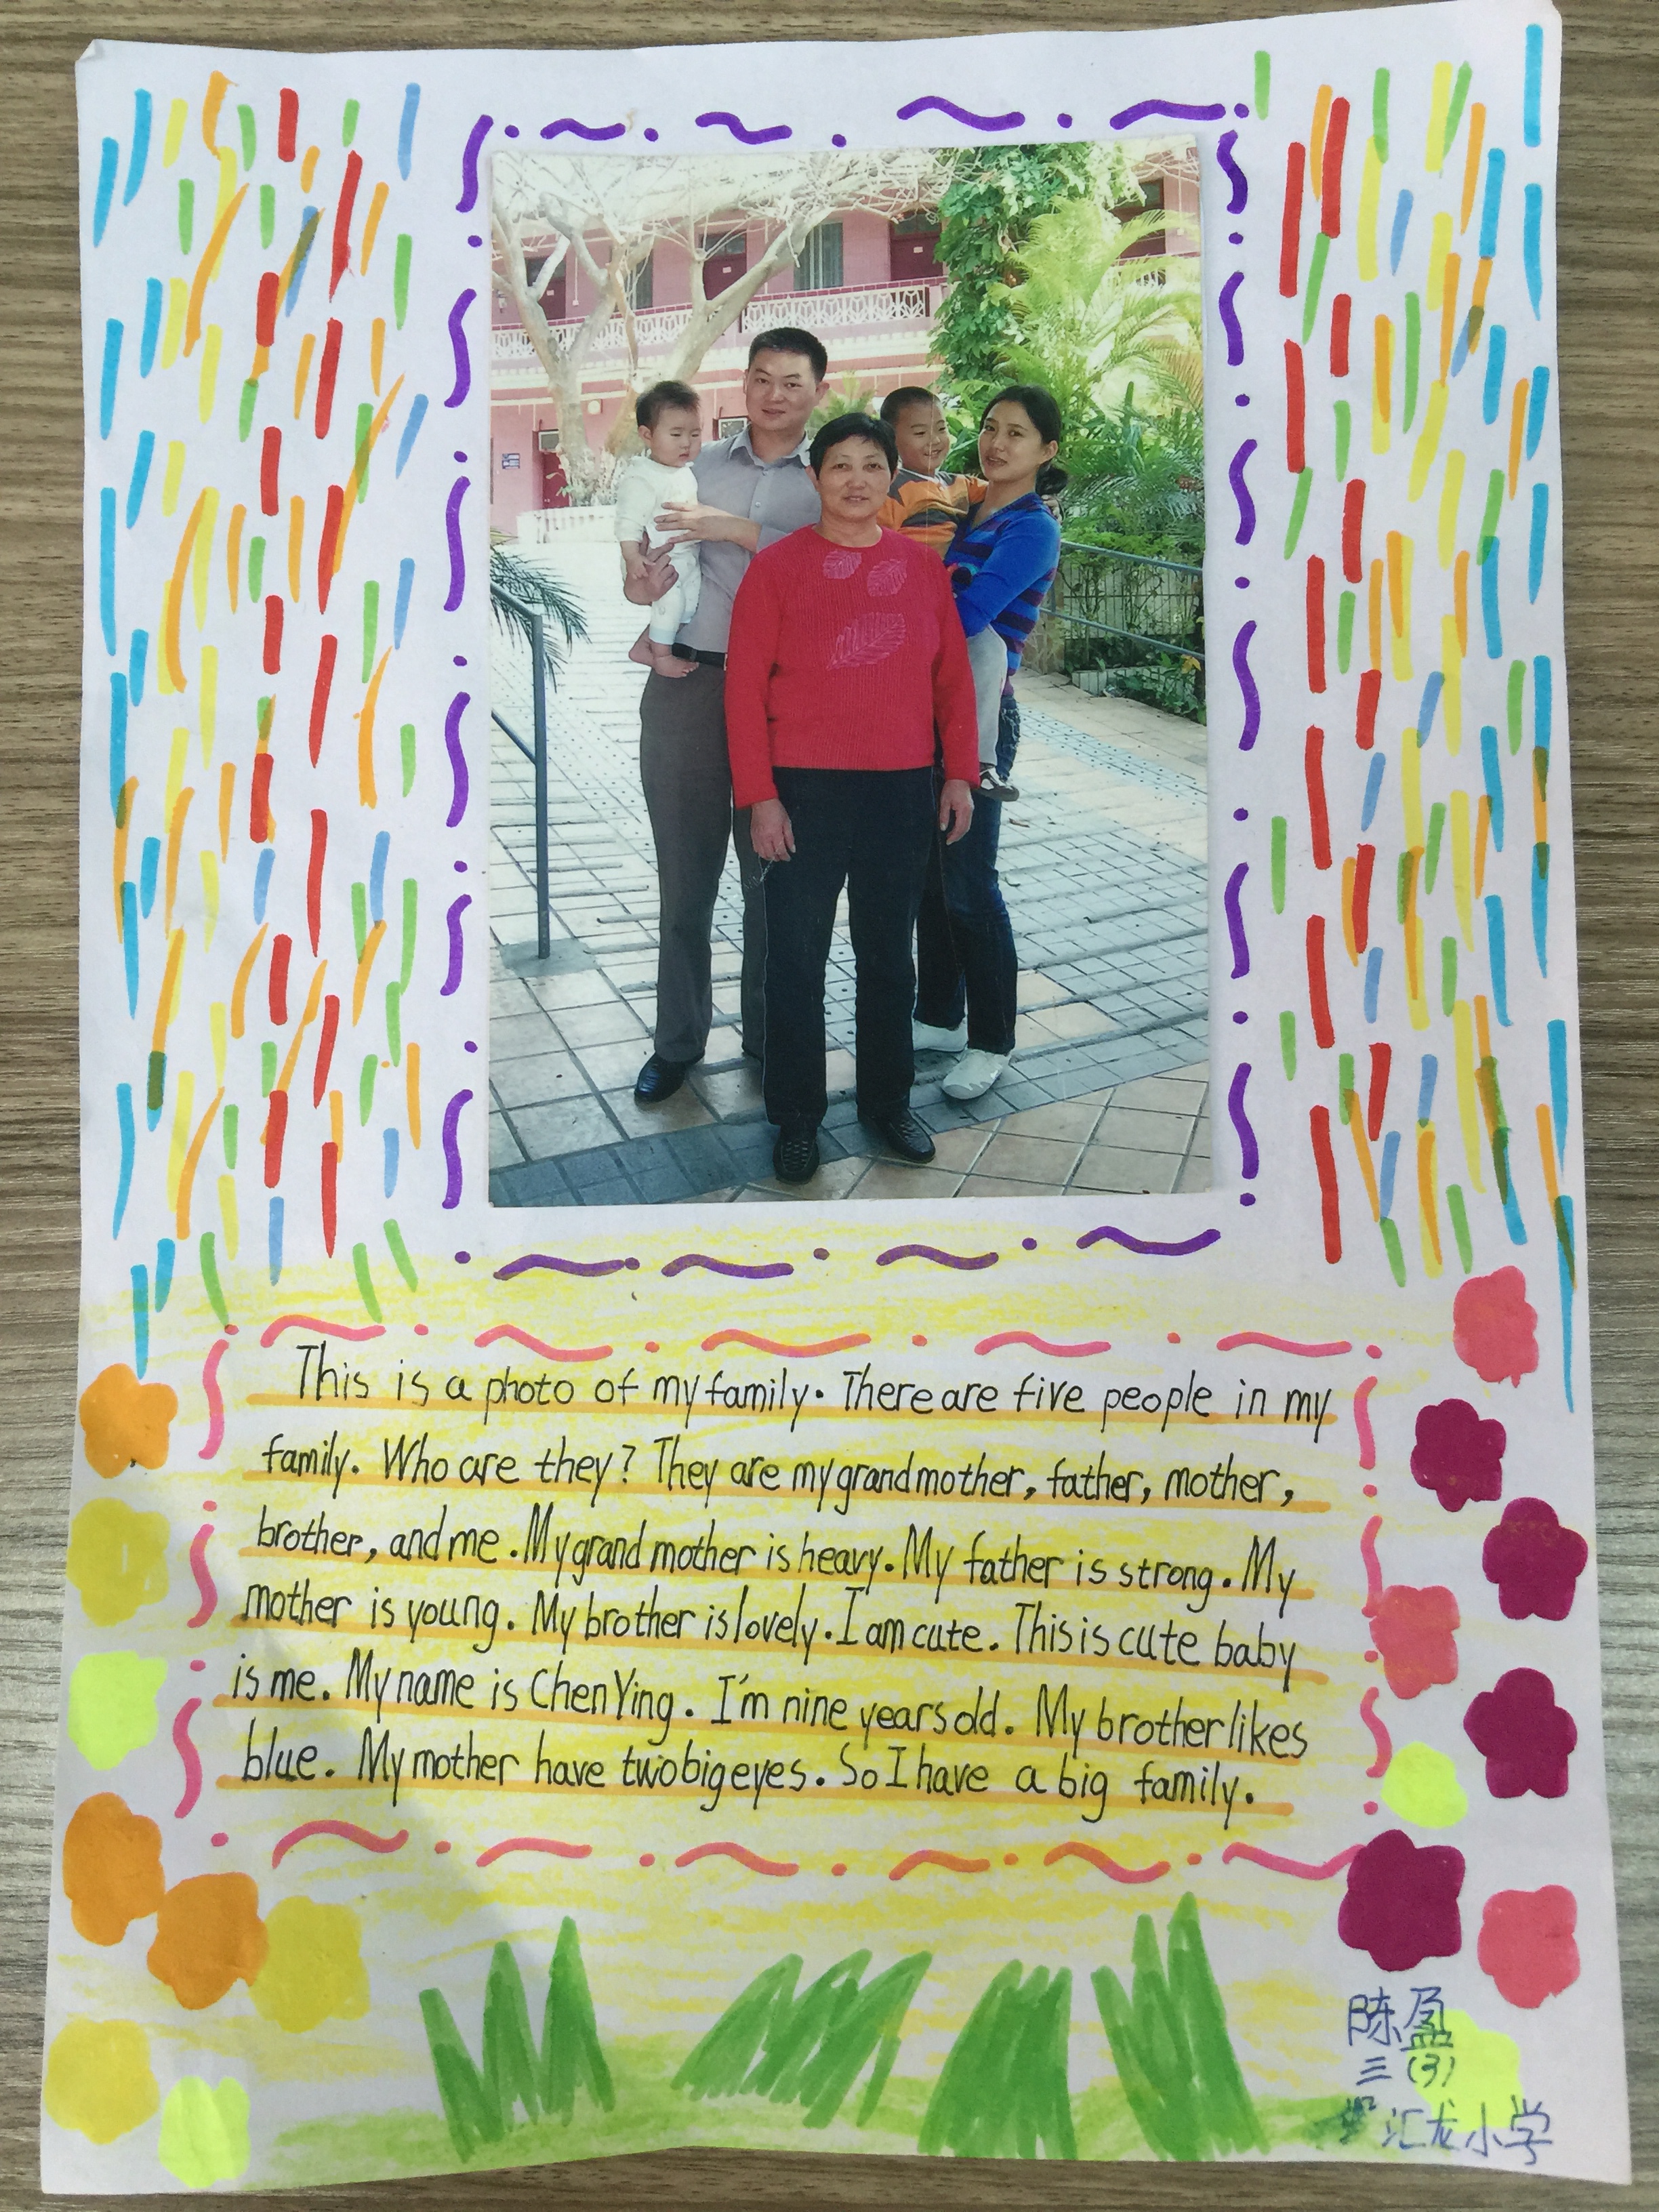 This is a photo of my family. There are five people in my
family. Who are they? They are my grandmother, father, mother,
brother, and me. My grand mother is heavy. My father is strong. My
mother is young. My brother is lovely. I am cute. This is cute baby
is me. My name is Chen Ying. I'm nine years old. My brother likes
blue. My mother have two big eyes. So I have a big family.
陈盈
三(3)
汇龙小学